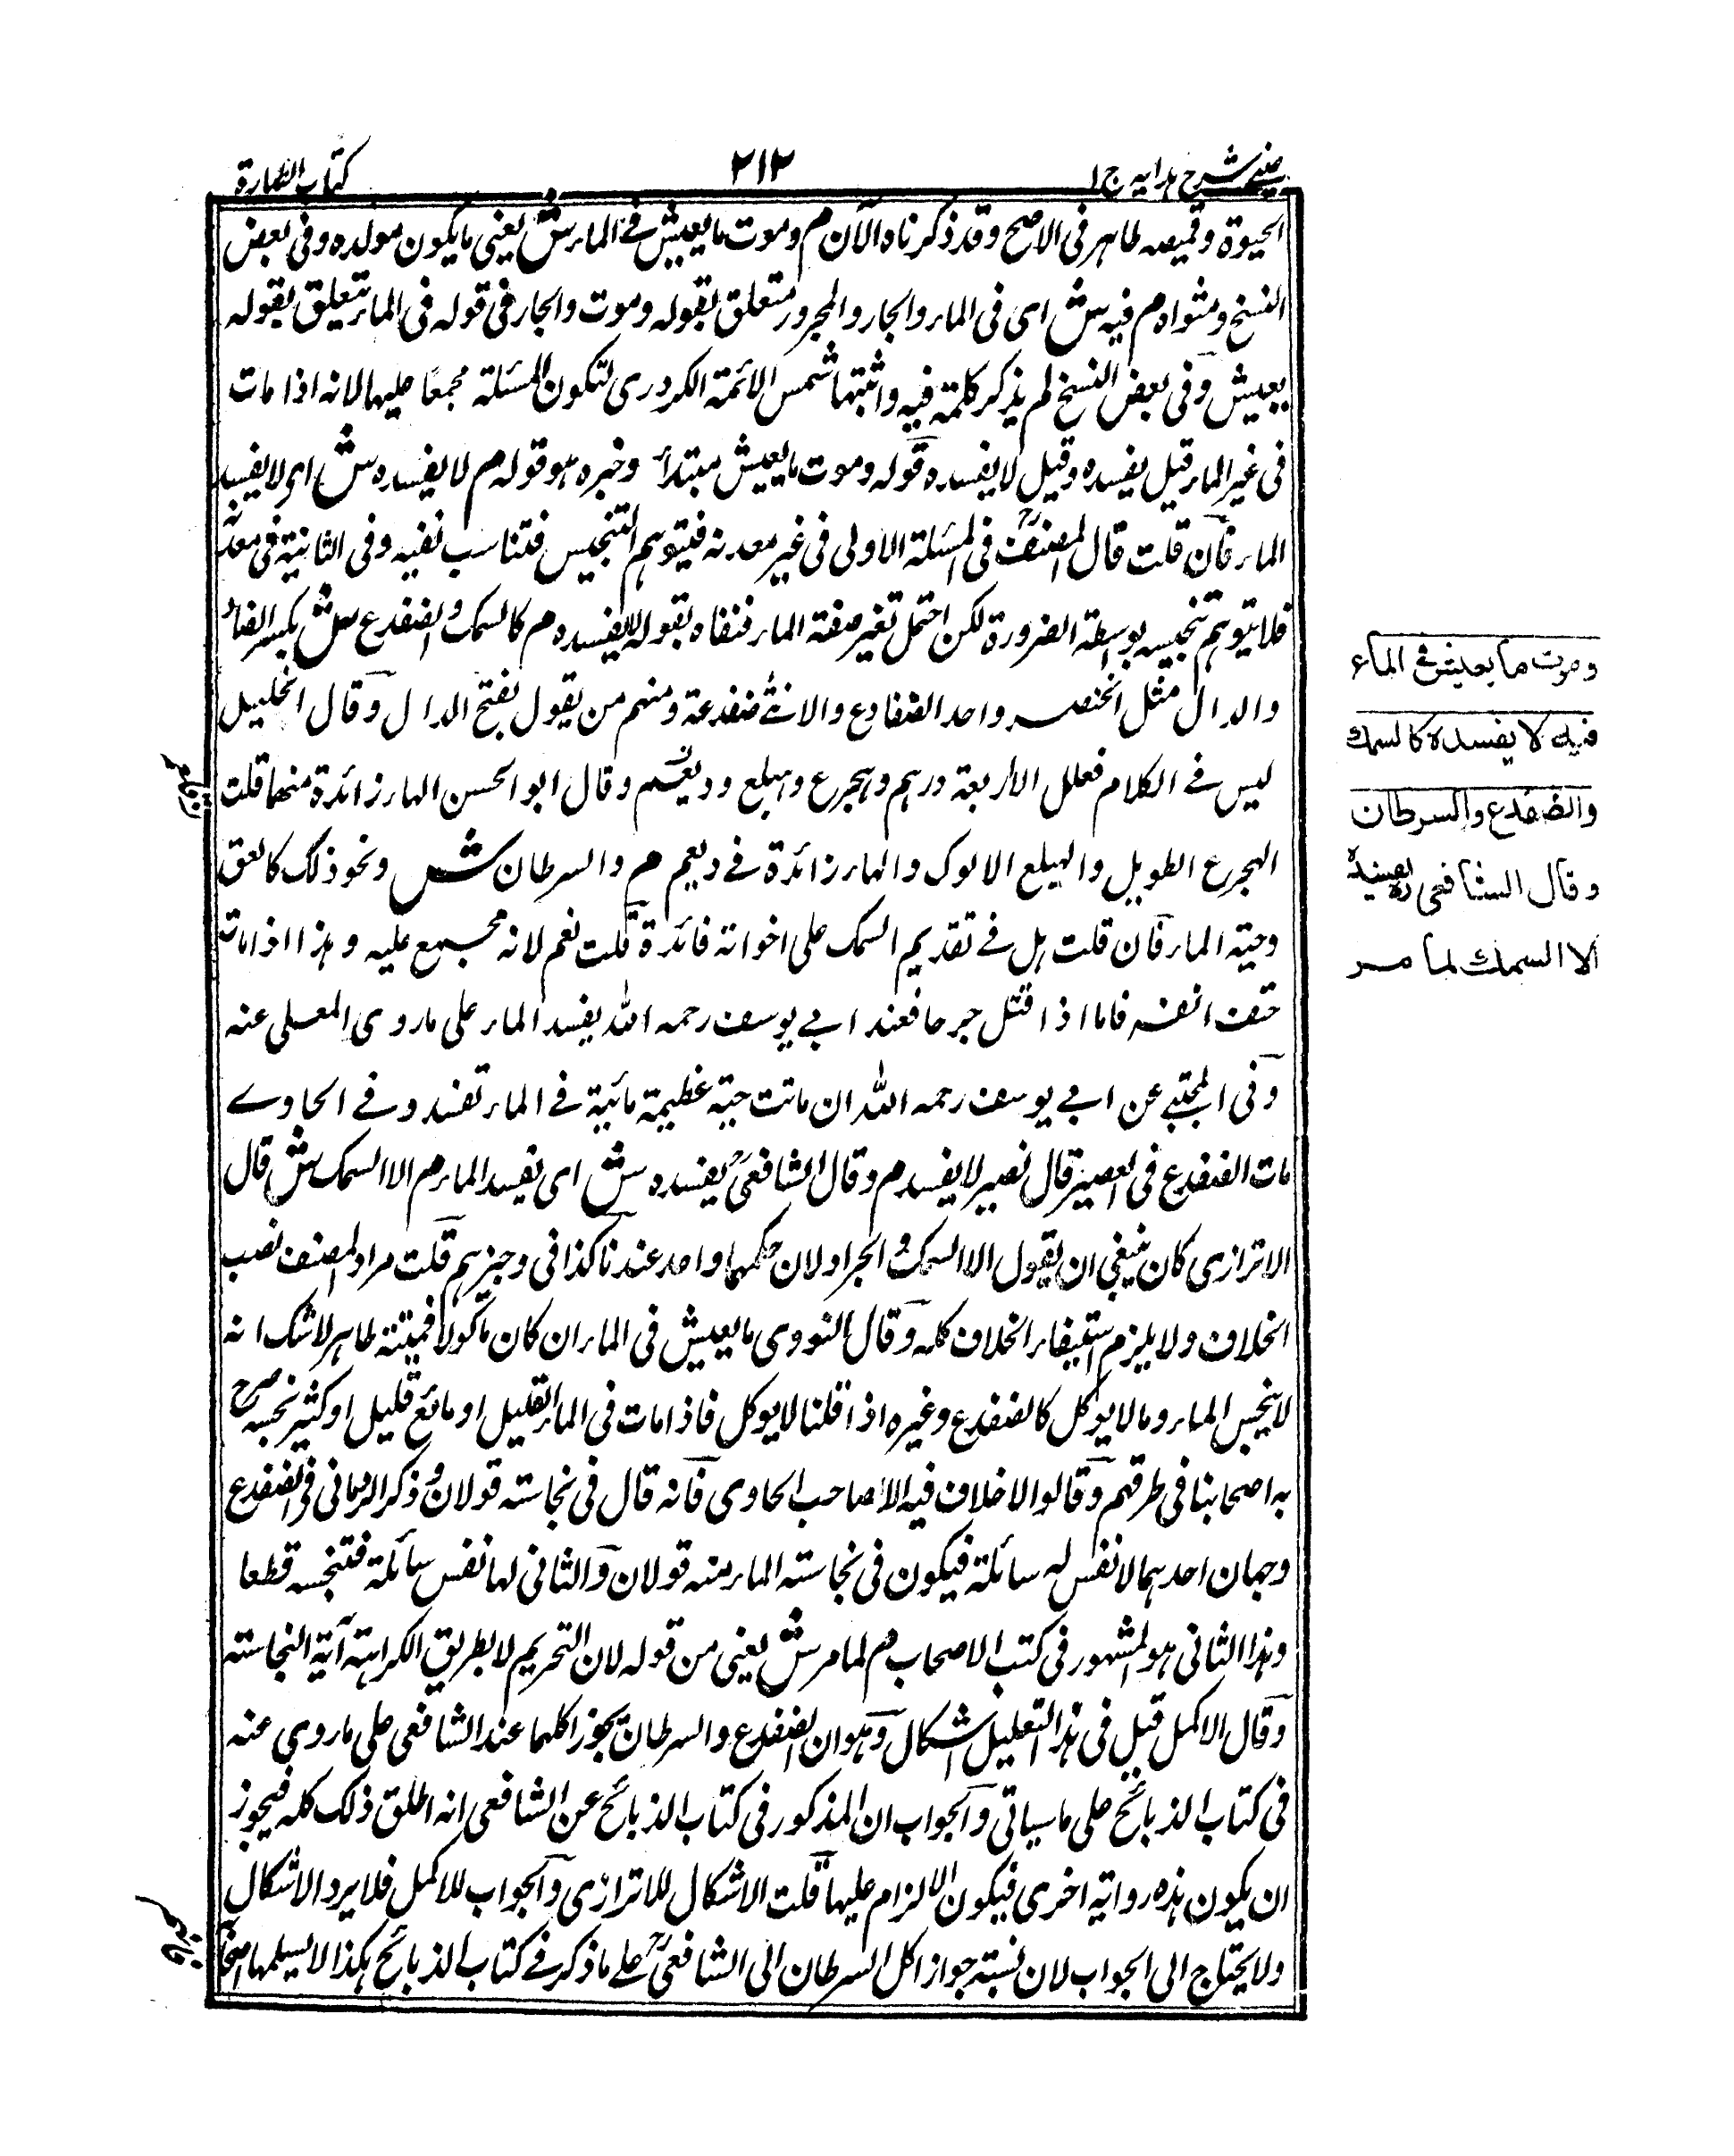 عینی شرح ہدایہ ج ۱
۲۱۲
کتاب الطہارۃ
الحیوۃ وقمیصہ طاہر فی الاصح وقد ذکرناہ الآن م وموت ما یعیش فے الماء ش یعنی ما یکون مولدہ وفی بعض
النسخ ومثواہ م فیہ ش ای فی الماء والجار والمجرور متعلق بقولہ وموت والجار فی قولہ فی الماء یتعلق بقولہ
یعیش وفی بعض النسخ لم یذکر کلمۃ فیہ واثبتہا شمس الائمۃ الکردری لتکون المسئلۃ مجمعًا علیہا لانہ اذا مات
فی غیر الماء قیل یفسدہ وقیل لا یفسدہ قولہ وموت ما یعیش مبتدأ وخبرہ ہو قولہ م لا یفسدہ ش ای لا یفسد
الماء فان قلت قال المصنفؒ فی المسئلۃ الاولی فی غیر معدنہ فیتوہم التنجیس فتناسب نفیہ وفی الثانیۃ فی معدنہ
فلا یتوہم تنجیسہ بواسطۃ الضرورۃ لکن احتمل تغیر صفۃ الماء فنفاہ بقولہ لا یفسدہ م کالسمک والضفدع ش بکسر الضاد
والدال مثل الخنصر واحد الضفادع والانثی ضفدعۃ ومنہم من یقول بفتح الدال وقال الخلیل
لیس فے الکلام فعلل الا اربعۃ درہم وہجرع وہبلع ودیعم وقال ابو الحسن الہاء زائدۃ منہما قلت
الہجرع الطویل والہبلع الاکول والہاء زائدۃ فے دیعم م والسرطان ش ونحو ذلک کالعق
وحیۃ الماء فان قلت ہل فے تقدیم السمک علی اخوانہ فائدۃ قلت نعم لانہ مجمع علیہ وہذا اذا مات
حتف انفہ فاما اذا قتل جرحا فعند ابے یوسف رحمہ اللہ یفسد الماء علی ما روی المعلی عنہ
وفی المجتبے عن ابے یوسف رحمہ اللہ ان ماتت حیۃ عظیمۃ مائیۃ فے الماء تفسد وفے الحاوے
مات الضفدع فی العصیر قال نصیر لا یفسد م وقال الشافعیؒ یفسدہ ش ای یفسد الماء م الا السمک ش قال
الاترازی کان ینبغی ان یقول الا السمک والجراد لان حکمہما واحد عندنا کذا فی وجیزہم قلت مراد المصنف نصب
الخلاف ولا یلزم استیفاء الخلاف کلہ وقال النووی ما یعیش فی الماء ان کان ماکولا فمیتتہ طاہر لا شک انہ
لا ینجس الماء وما لا یوکل کالضفدع وغیرہ اذا قلنا لا یوکل فاذا مات فی الماء القلیل او مائع قلیل او کثیر نجسہ صرح
بہ اصحابنا فی طرقہم وقالوا لا خلاف فیہ الا صاحب الحاوی فانہ قال فی نجاستہ قولان وذکر الرویانی فی الضفدع
وجہان احدہما لا نفس لہ سائلۃ فیکون فی نجاستہ الماء منہ قولان والثانی لہا نفس سائلۃ فتنجسہ قطعا
وہذا الثانی ہو المشہور فی کتب الاصحاب م لما مر ش یعنی من قولہ لان التحریم لا بطریق الکراہۃ آیۃ النجاستہ
وقال الاکمل قیل فی ہذا التعلیل اشکال وہو ان الضفدع والسرطان یجوز اکلہما عند الشافعی علی ما روی عنہ
فی کتاب الذبائح علی ما سیاتی والجواب ان المذکور فی کتاب الذبائح عن الشافعی انہ اطلق ذلک کلہ فیجوز
ان یکون ہذہ روایۃ اخری فیکون الالزام علیہا قلت الاشکال للاترازی والجواب للاکمل فلا یرد الاشکال
ولا یحتاج الی الجواب لان نسبۃ جواز اکل السرطان الی الشافعیؒ علے ما ذکر فے کتاب الذبائح ہکذا لا یسلمہا
وموت ما یعیش فی الماء
فیہ لا یفسدہ کالسمك
والضفدع والسرطان
وقال الشافعی رہ یفسدہ
الا السمك لما مر